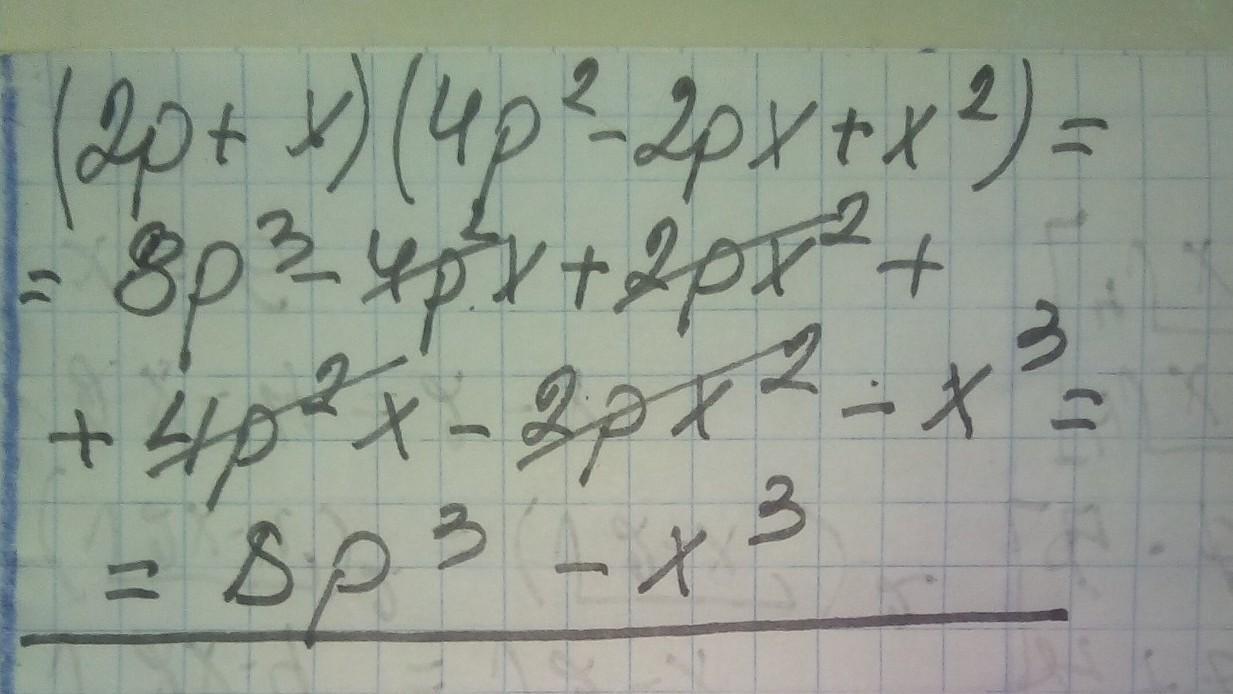 (2p + x)(4p² - 2px + x²) =
= 8p³ - 4p²x + 2px² +
+ 4p²x - 2px² - x³ =
= 8p³ - x³